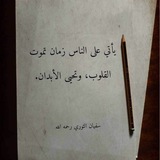 يأتي على الناس زمان تموت
القلوب، وتحيى الأبدان.
سفيان الثوري رحمه الله